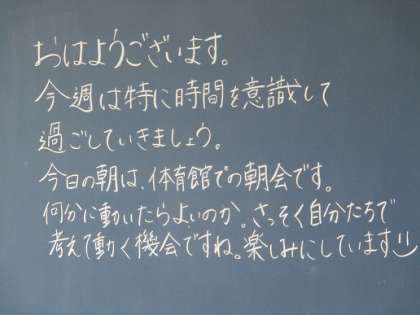 おはようございます。
今週は特に時間を意識して
過ごしていきましょう。
今日の朝は、体育館での朝会です。
何分に動いたらよいのか。さっそく自分たちで
考えて動く機会ですね。楽しみにしています